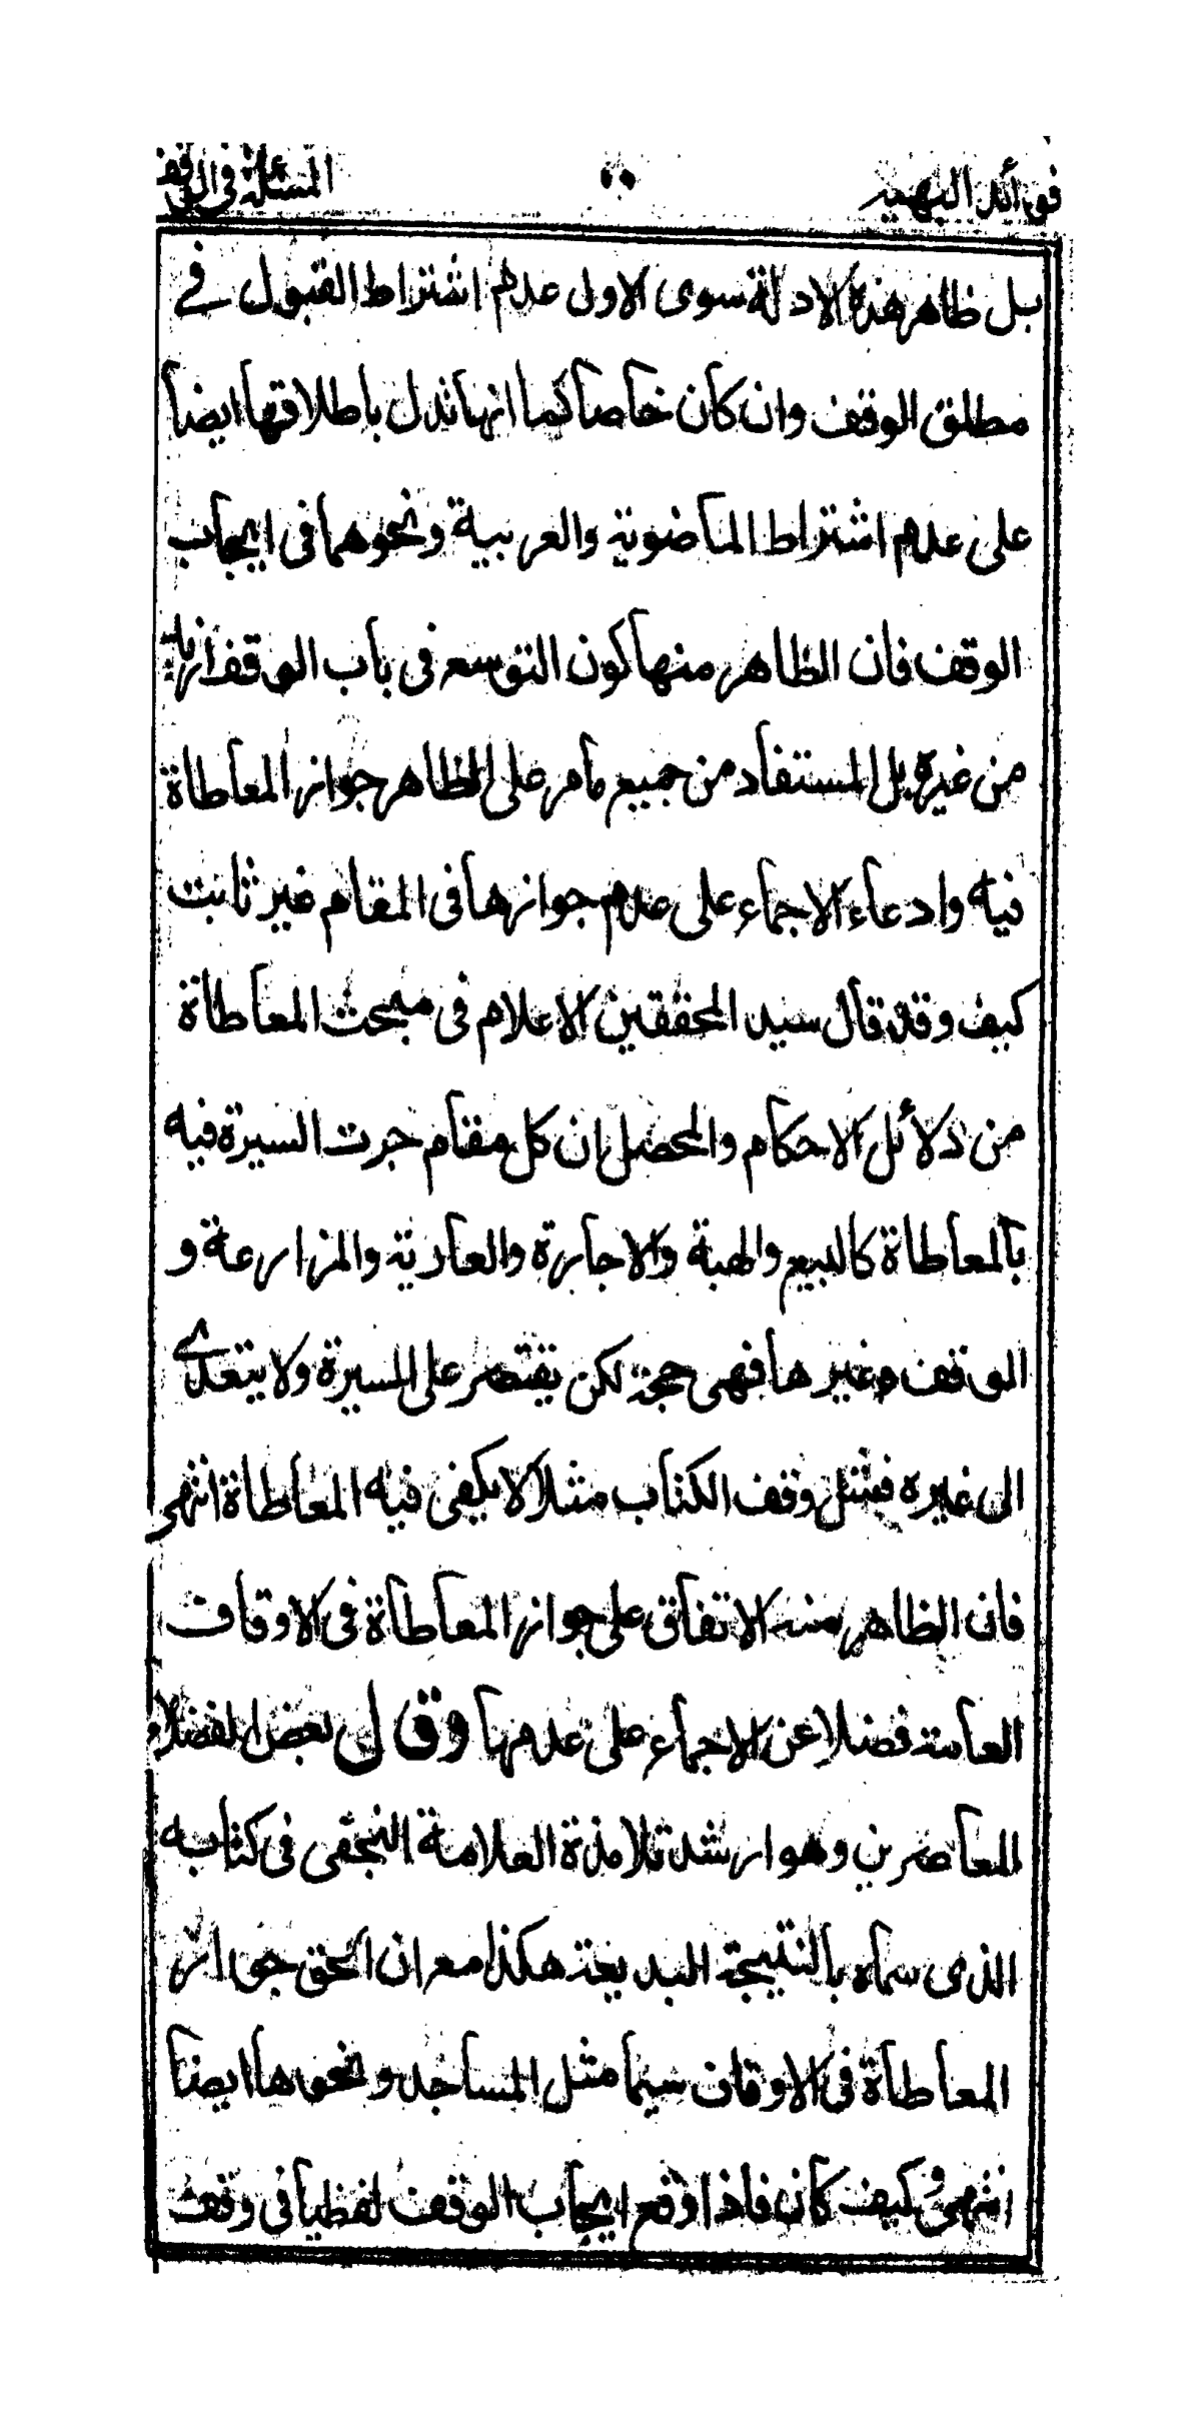 فوائد البهيه
المسئلة فى الوقف
بل ظاهر هذه الادلة سوى الاول عدم اشتراط القبول فے
مطلق الوقف وان كان خاصا كما انها تدل باطلاقها ايضا
على عدم اشتراط الماضوية والعربية ونحوهما فى ايجاب
الوقف فان الظاهر منها كون التوسعه فى باب الوقف ازيد
من غيره بل المستفاد من جميع ما مر على الظاهر جواز المعاطاة
فيه وادعاء الاجماع على عدم جوازها فى المقام غير ثابت
كيف وقد قال سيد المحققين الاعلام فى مبحث المعاطاة
من دلائل الاحكام والمحصل ان كل مقام جرت السيرة فيه
بالمعاطاة كالبيع والهبة والاجارة والعارية والمزارعة و
الوقف وغيرها فهى حجة لكن يقتصر على السيرة ولا يتعدے
الى غيره فمثل وقف الكتاب مثلا لا يكفى فيه المعاطاة انتهى
فان الظاهر منه الاتفاق على جواز المعاطاة فى الاوقاف
العامة فضلا عن الاجماع على عدمها وقال بعض الفضلاء
المعاصرين وهو ارشد تلامذة العلامة النجفى فى كتابه
الذى سماه بالنتيجة البديعة هكذا مع ان الحق جواز
المعاطاة فى الاوقاف سيما مثل المساجد ونحوها ايضا
انتهى وكيف كان فاذا وقع ايجاب الوقف لفظيا فى وقف